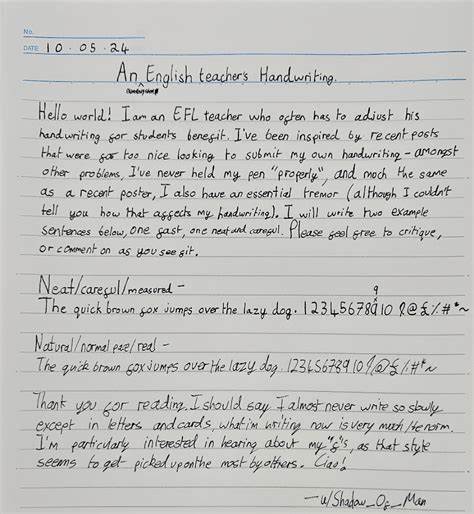 No.
DATE 10 . 05 . 24
An English teacher's Handwriting.
Hello world! I am an EFL teacher who often has to adjust his
handwriting for students benefit. I've been inspired by recent posts
that were far too nice looking to submit my own handwriting - amongst
other problems, I've never held my pen "properly", and much the same
as a recent poster, I also have an essential tremor (although I couldn't
tell you how that affects my handwriting). I will write two example
sentences below, one fast, one neat and careful. Please feel free to critique,
or comment on as you see fit.
Neat/careful/measured -
9
The quick brown fox jumps over the lazy dog. 12345678910 !?@£%#*~
Natural/normal pace/real -
The quick brown fox jumps over the lazy dog. 12345678910 !?@£%#*~
Thank you for reading. I should say I almost never write so slowly
except in letters and cards, what im writing now is very much the norm.
I'm particularly interested in hearing about my "f"s, as that style
seems to get picked up on the most by others. Ciao!
- u/Shadow_Of_Man